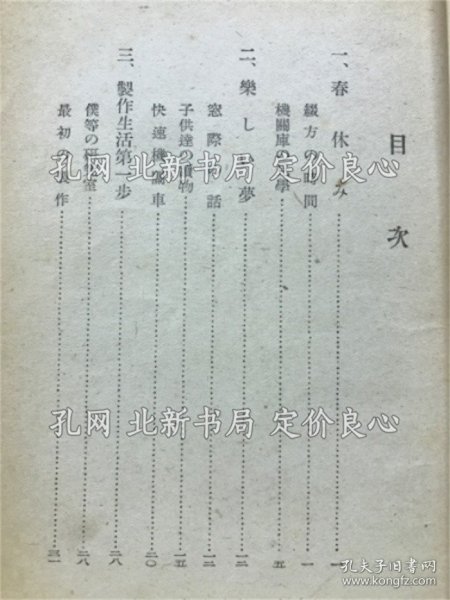 目次
一、春休み…………一
綴方の時間…………一
機關庫の見學…………五
二、樂しい夢…………一二
窓際の話…………一二
子供達の讀物…………一五
快速機關車…………二〇
三、製作生活第一步…………二八
僕等の研究室…………二八
最初の製作…………三一
孔网 北新书局 定价良心
孔网 北新书局 定价良心
孔网 北新书局 定价良心
孔夫子旧书网
www.kongfz.com